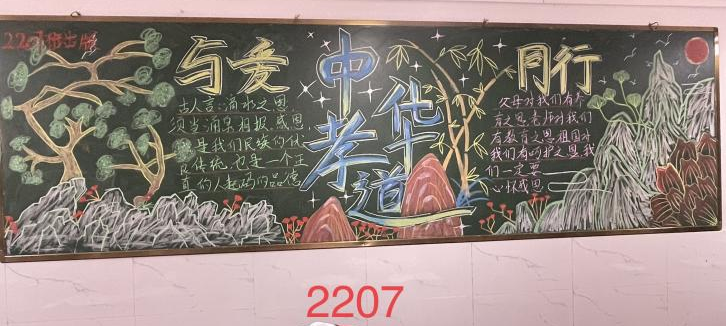 22
出版
与爱
古人言:滴水之恩
须当涌泉相报,感恩
是我们民族的优
良传统,也是一个正
直的人起码的品德
中华
孝道
同行
父母对我们有养
育之恩,老师对我们
有教育之恩,祖国对
我们有呵护之恩,我
们一定要
心怀感恩
2207